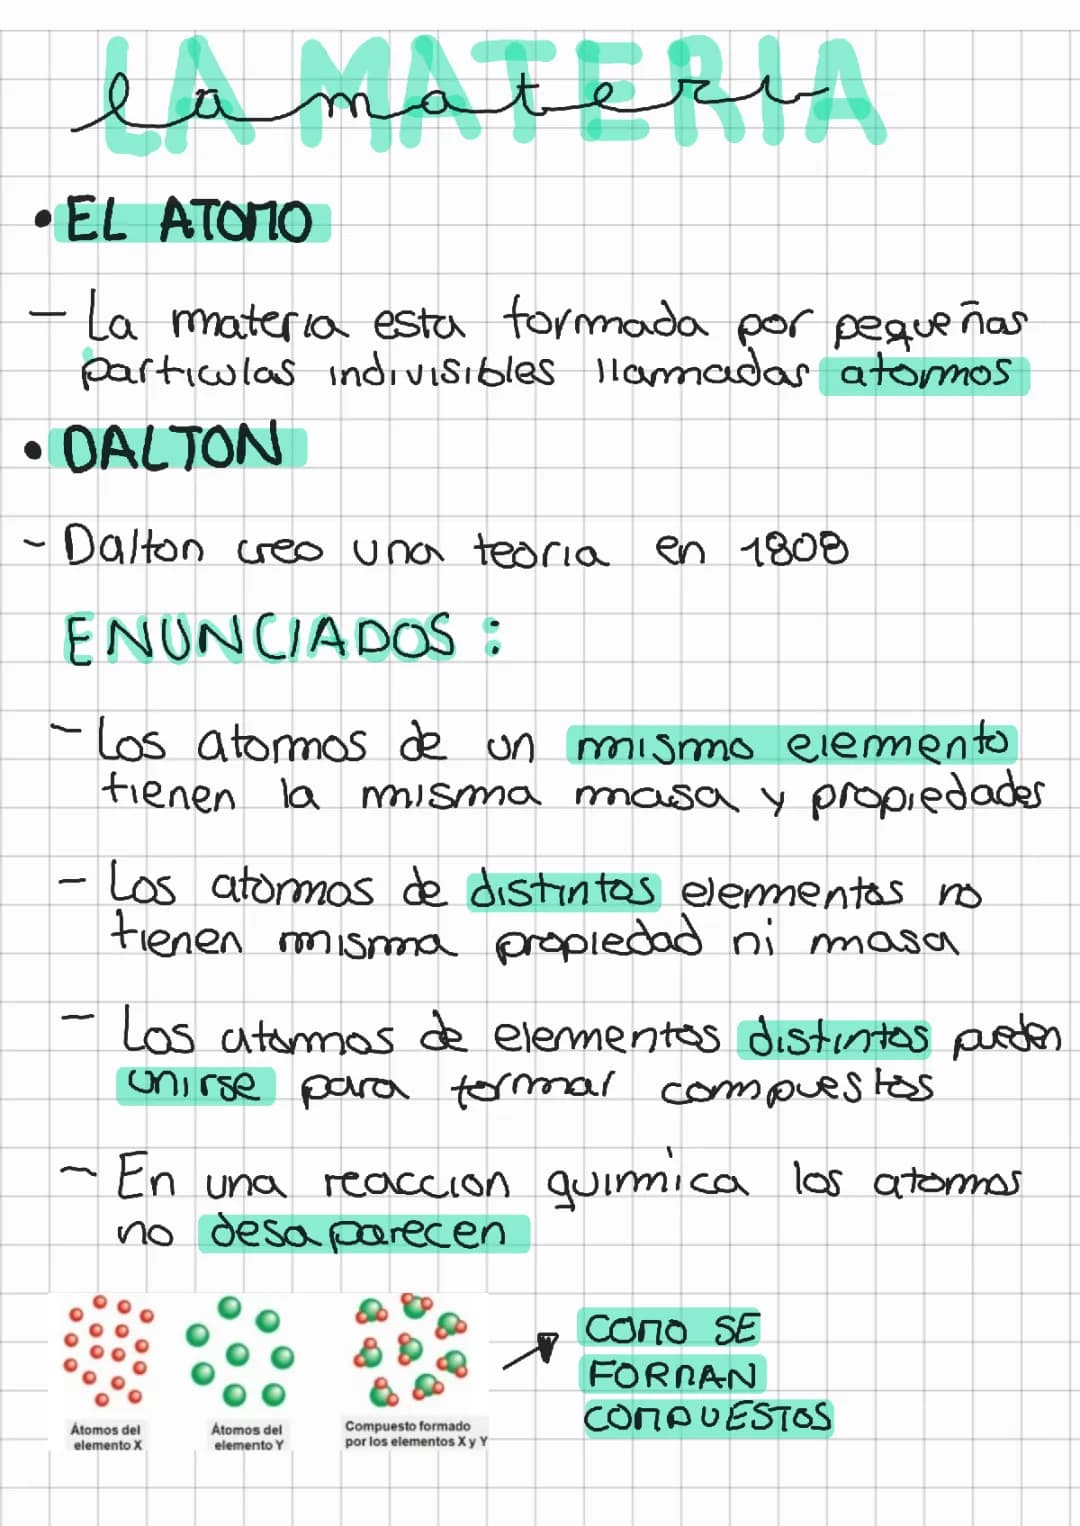 LA MATERIA
la materia
• EL ATOMO
- La materia esta formada por pequeñas
particulas indivisibles llamadas atomos
• DALTON
- Dalton creo una teoria en 1808
ENUNCIADOS:
- Los atomos de un mismo elemento
tienen la misma masa y propiedades
- Los atomos de distintos elementos no
tienen misma propiedad ni masa
- Los atomos de elementos distintos pueden
unirse para formar compuestos
- En una reaccion quimica los atomos
no desaparecen
Átomos del
elemento X
Átomos del
elemento Y
Compuesto formado
por los elementos X y Y
COMO SE
FORMAN
COMPUESTOS